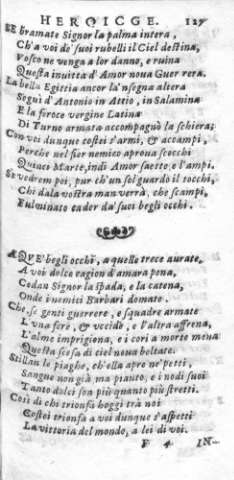 HEROICGE. 127
SE bramate Signor la palma intera,
Ch'a voi de' suoi rubelli il Ciel destina,
Vosco ne venga a lor danno, e ruina
Questa inuitta d'Amor noua Guerrera.
La bella Egittia ancor la'nsegna altera
Seguì d'Antonio in Attio, in Salamina
E la feroce vergine Latina
Di Turno armata accompagnò la schiera;
Con voi dunque costei s'armi, & accampi,
Perche nel fier nemico aproua scocchi
Quinci Marte, indi Amor saette, e lampi.
Se vedrem poi, pur ch'un sol guardo il tocchi,
Chi da la vostra man verrà, che scampi,
Fulminato cader da' suoi begli occhi.
A QVE' begli occhi, a quelle trece aurate,
A voi dolce cagion d'amara pena,
Cedan Signor la spada, e la catena,
Onde i nemici Barbari domate.
Che, se genti guerrere, e squadre armate
L'una fere, & vccide, e l'altra affrena,
L'alme imprigiona, e i cori a morte mena
Questa scesa di ciel noua beltate.
Stillan le piaghe, ch'ella apre ne' petti,
Sangue non già, ma pianto, e i nodi suoi
Tanto dolci son più quanto più stretti.
Così di chi trionfa hoggi trà noi
Costei trionfa a voi dunque s'aspetti
La vittoria del mondo, a lei di voi.
F 4 IN-